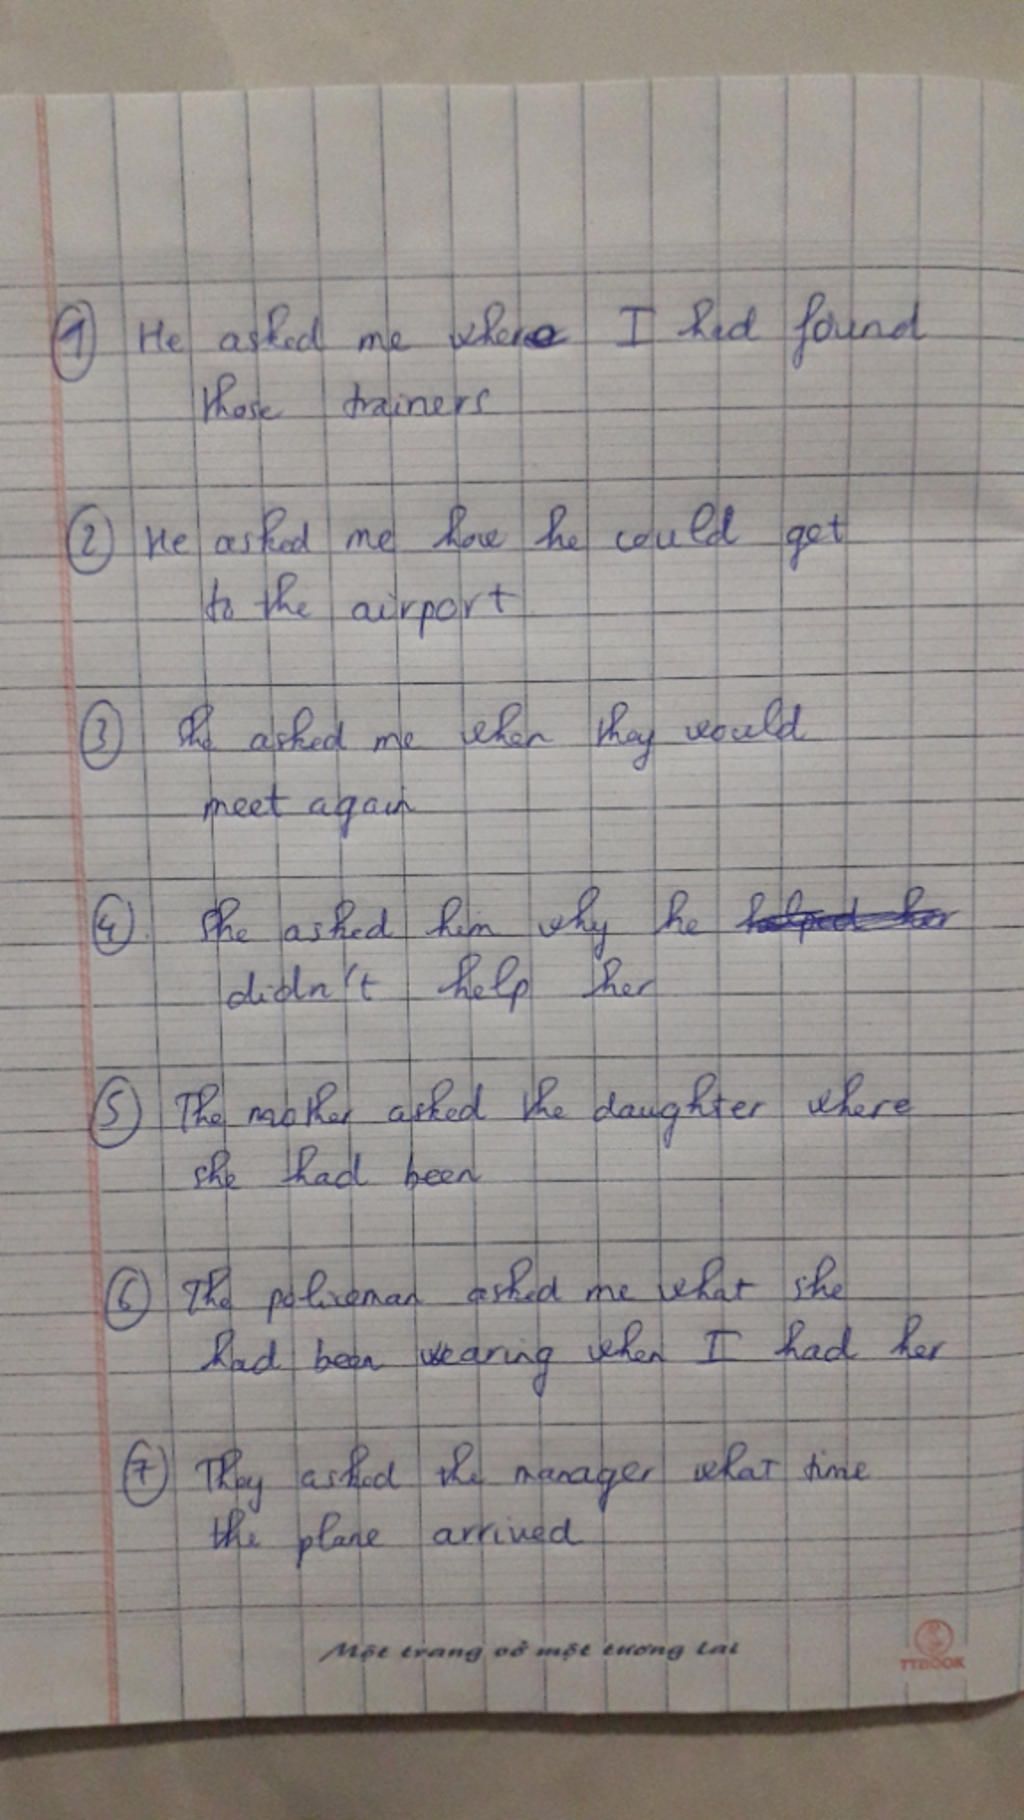 1 He asked me where I had found
those trainers
2 He asked me how he could get
to the airport
3 She asked me when they would
meet again
4 She asked him why he
didn't help her
5 The mother asked the daughter where
she had been
6 The policeman asked me what she
had been wearing when I had her
7 They asked the manager what time
the plane arrived
Một trang vở một tương lai
TTBOOK